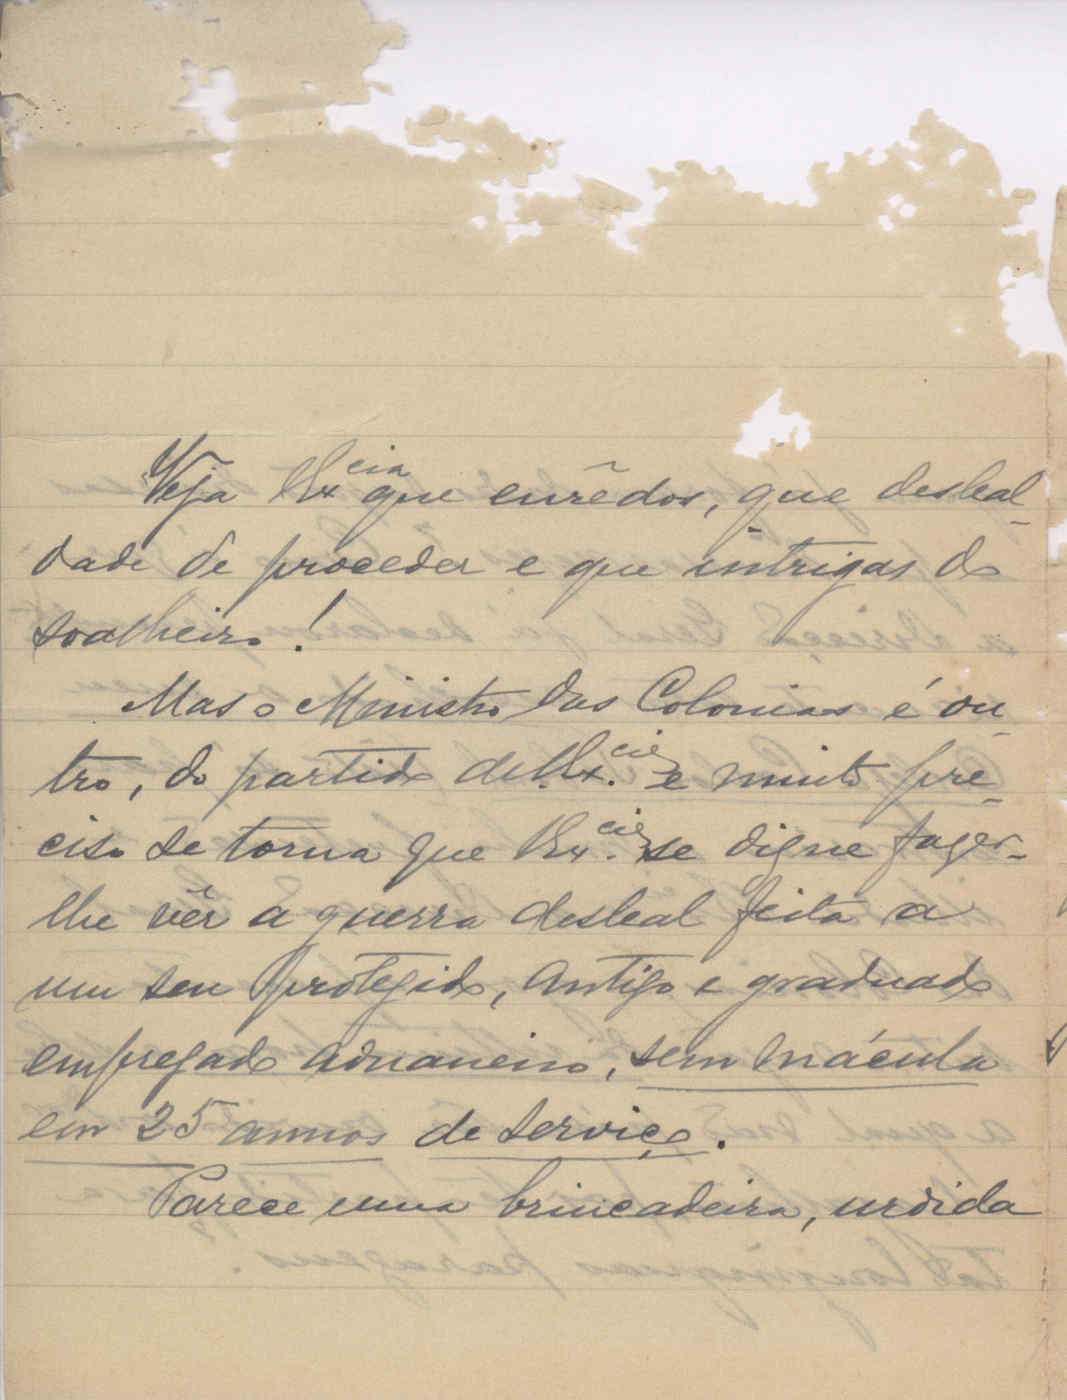 Veja V. Ex.cia que enrêdos, que desleal-
dade de proceder e que intrigas de
soalheiro!
Mas o Ministro das Colonias é ou-
tro, do partido de V. Ex.cia e muito pre-
ciso se torna que V. Ex.cia se digne fazer-
lhe vêr a guerra desleal feita a
um seu protegido, antigo e graduado
empregado aduaneiro, sem mácula
em 25 annos de serviço.
Parece uma brincadeira, urdida